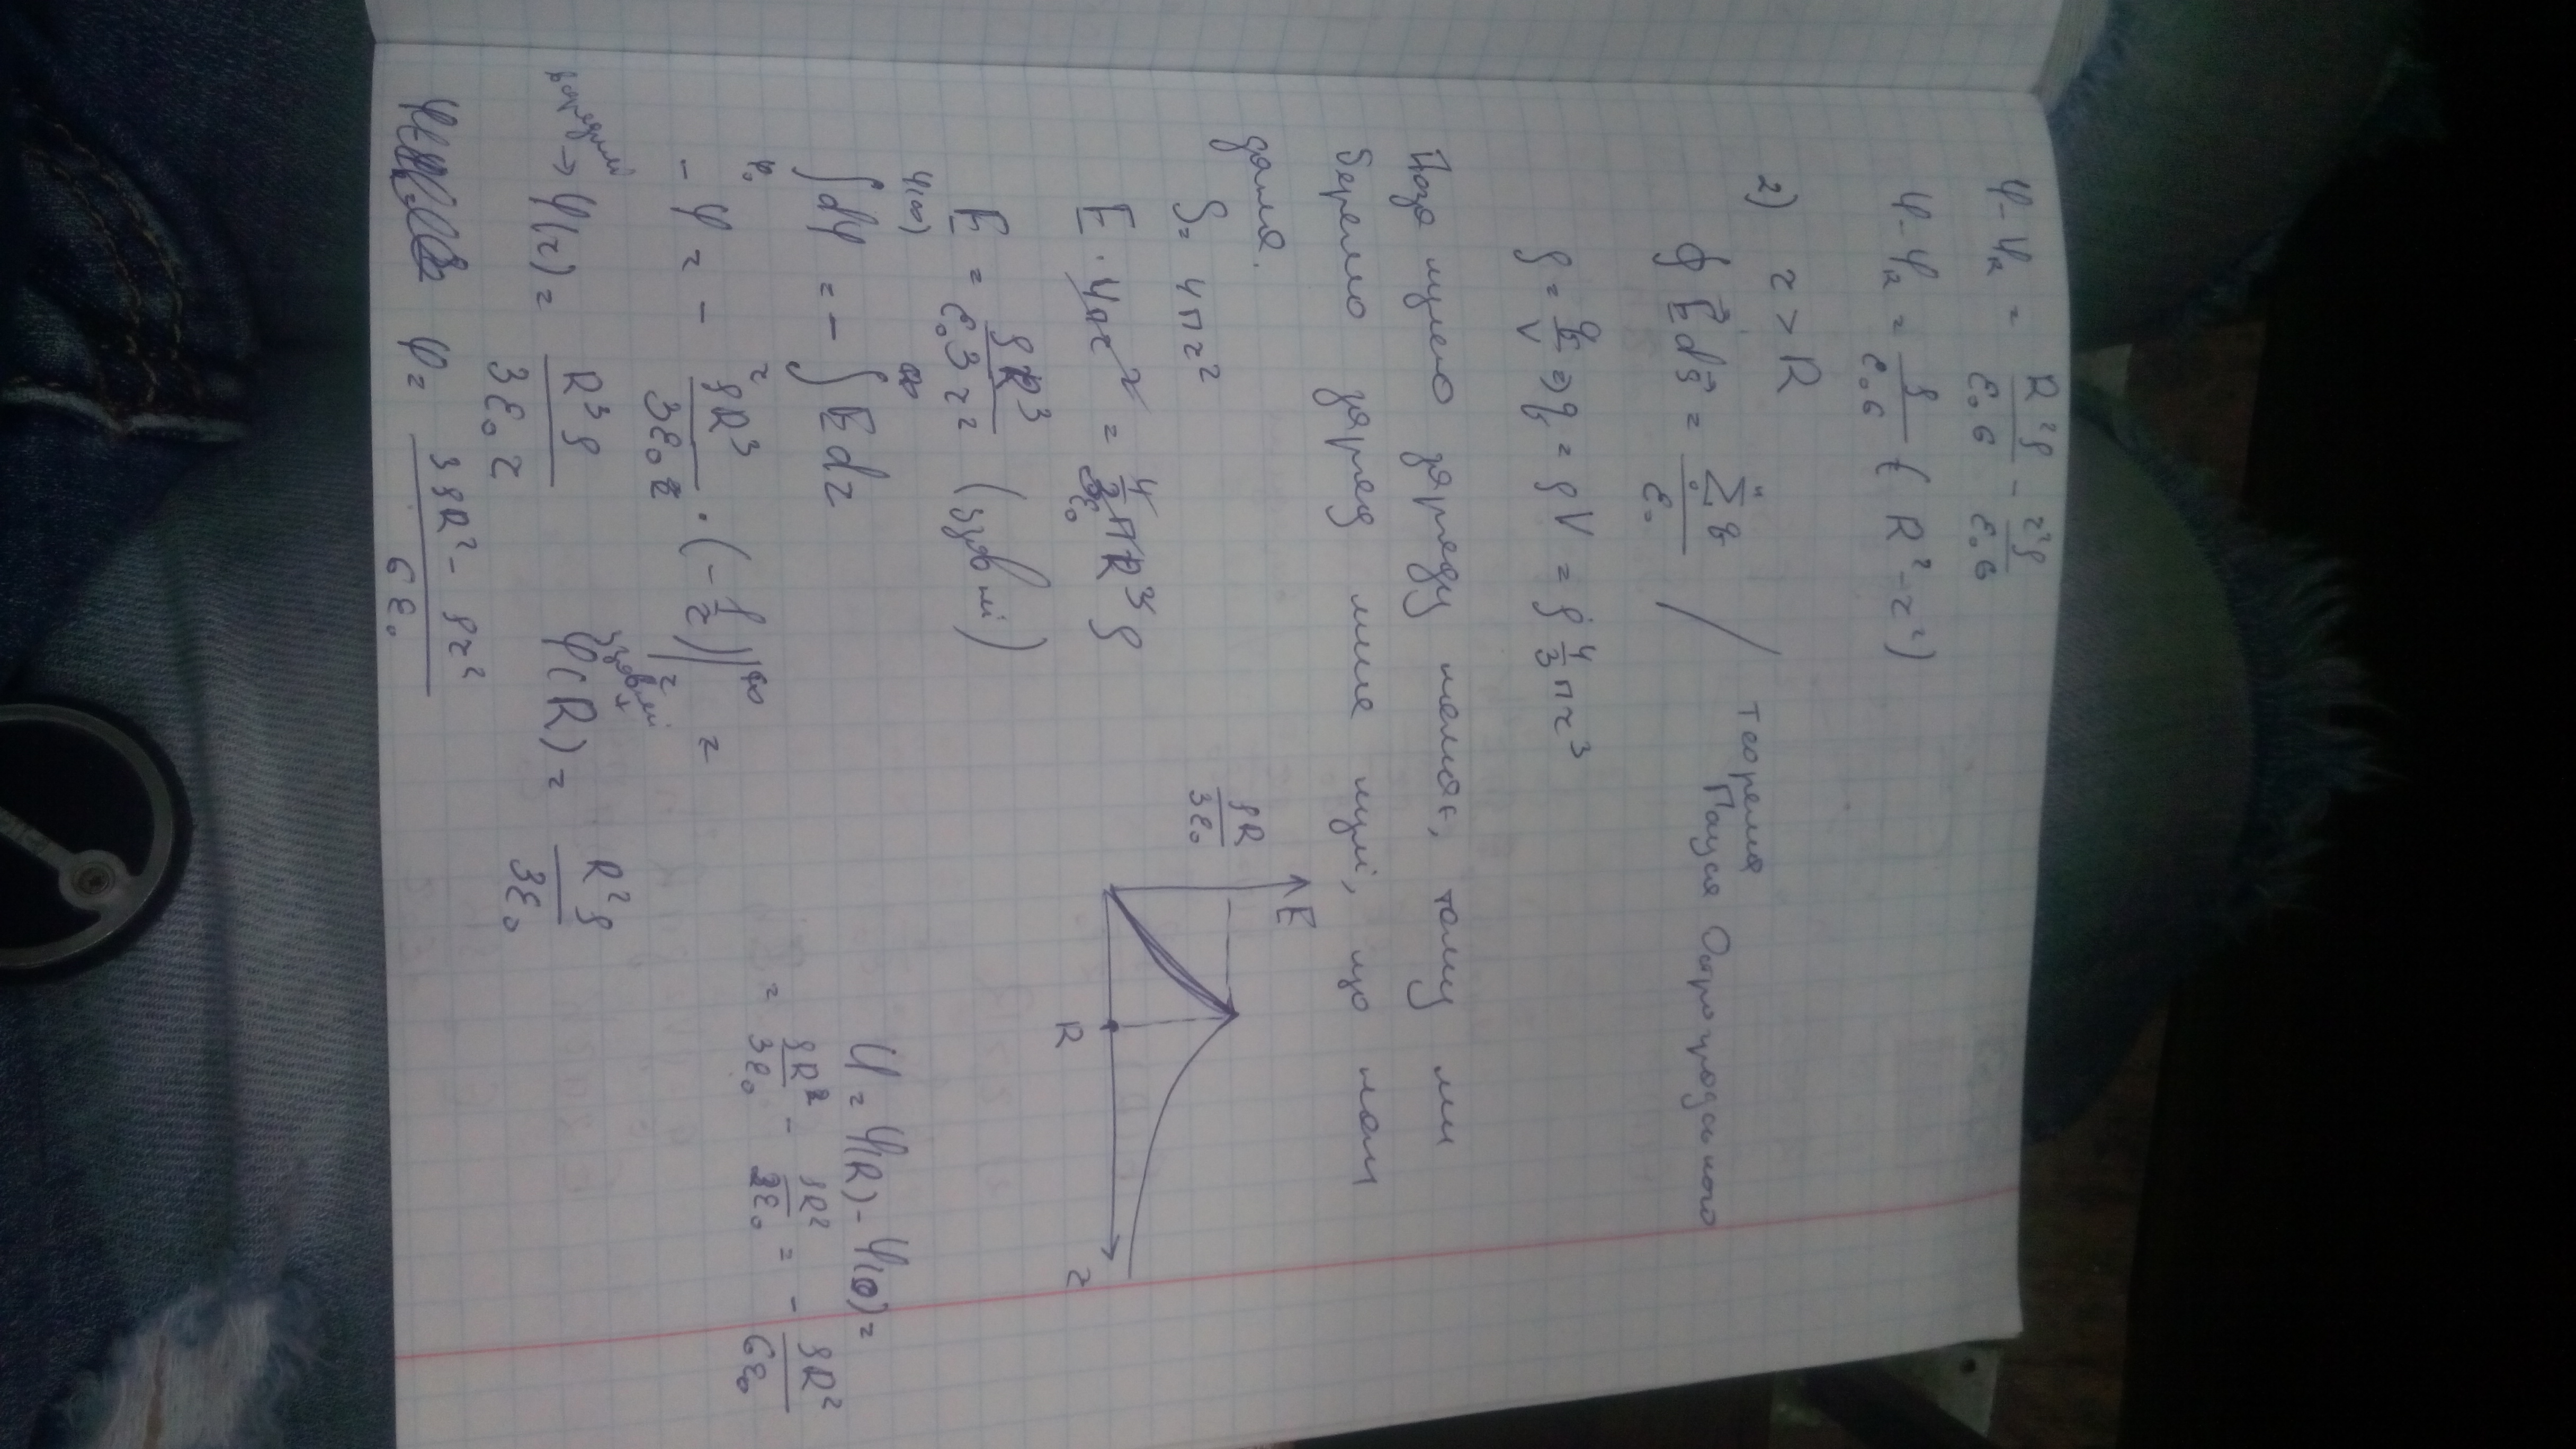 φ - φ_R = R²ρ/ε₀6 - r²ρ/ε₀6
φ - φ_R = ρ/ε₀6 (R² - r²)
2) r > R
∮ E⃗ dS⃗ = Σq/ε₀ / теорема Гауса Остроградського
ρ = q/V ⇒ q = ρV = ρ 4/3 πr³
Поза кулею заряду немає, тому ми
беремо заряд лише кулі, що нам
дали.
S = 4πr²
E · 4πr² = 4/3ε₀ πR³ρ
E = ρR³/ε₀3r² (ззовні)
∫dφ = - ∫E dr
- φ = - ρR³/3ε₀ · (- 1/r)|
φ(r) = R³ρ/3ε₀r
φ(R) = R²ρ/3ε₀
ззовні
φ = 3ρR² - ρr²/6ε₀
E
ρR/3ε₀
R
r
U = φ(R) - φ(0) =
= ρR²/3ε₀ - ρR²/2ε₀ = - ρR²/6ε₀